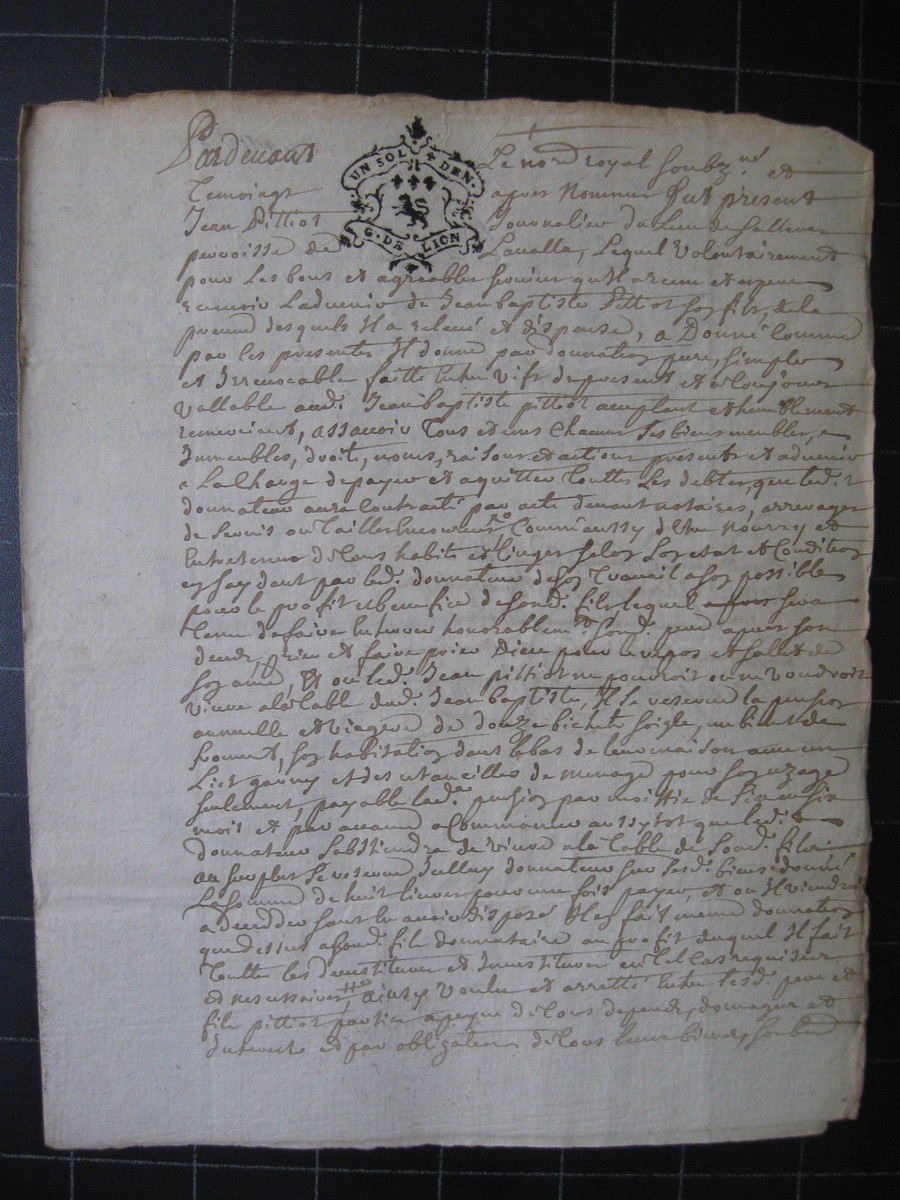 Pardevant Le no.re royal soubz.né et
UN SOL 4 DEN.
G. DE LION
Temoings apres nommés fut présent
Jean Pittiot Journalier du Lieu de
parroisse de Lavalla, Lequel volontairement
pour Les bons et agreables services qu'Il a receu et espere
recevoir Ladvenir de Jean baptiste Pittiot son fils, de la
preuve desquels Il a relevé et dispensé, a Donné Comme
par les presentes Il donne par donnation pure, simple
et Irrevocable faitte Entre vifs de present et a toujours
vallable aud. Jean baptiste pittiot acceptant et humblement
remerciant, assavoir Tous et uns Chacuns ses biens meubles, et
Immeubles, droits, noms, raisons et actions presents et advenir
a La Charge de payer et aquitter Touttes Les debtes, que led.
donnateur aura Contracté par acte devant notaires, arrerages
de servis ou Tailles Comm'aussy d'Etre nourry et
Entretenu de Tous habits et linges selon son etat et Condition
en s'aydant par led. donnateur de son Travail a son possible
pour le proffit et benefice de sond. fils lequel sera
Tenu de faire Enterrer honorablem.t sond. pere apres son
deceds, prier et faire prier Dieu pour le repos et salut de
son ame, Et ou led. Jean pittiot ne pourroit ou ne voudroit
vivre a la Table dud. Jean baptiste, Il se reserve la pension
annuelle et viagere de douze bichets soigle, un bichet de
froment, son habitation dans le bas de leur maison avec un
Lict garny et des utancilles de menage pour son uzage
seulement, payable lad.e pension par moittie de six en six
mois et par avance a Commancer aussytot que led.
donnateur s'abstiendra de vivre a la Table de sond. fils
au surplus se reserve Icelluy donnateur sur sesd. biens donnés
La somme de huit livres pour une fois payée, et ou Il viendroit
a deceder sans En avoir disposé Il en fait meme donnation
que dessus a sond. fils donnataire au proffit duquel Il fait
Touttes les devestitures et Investitures en tel cas requises
et necessaires, ainsy voulu et arretté Entre lesd. pere et
fils pittiot parties a peyne de Tous depends, domages et
Interets et par obligation de Tous leurs biens,